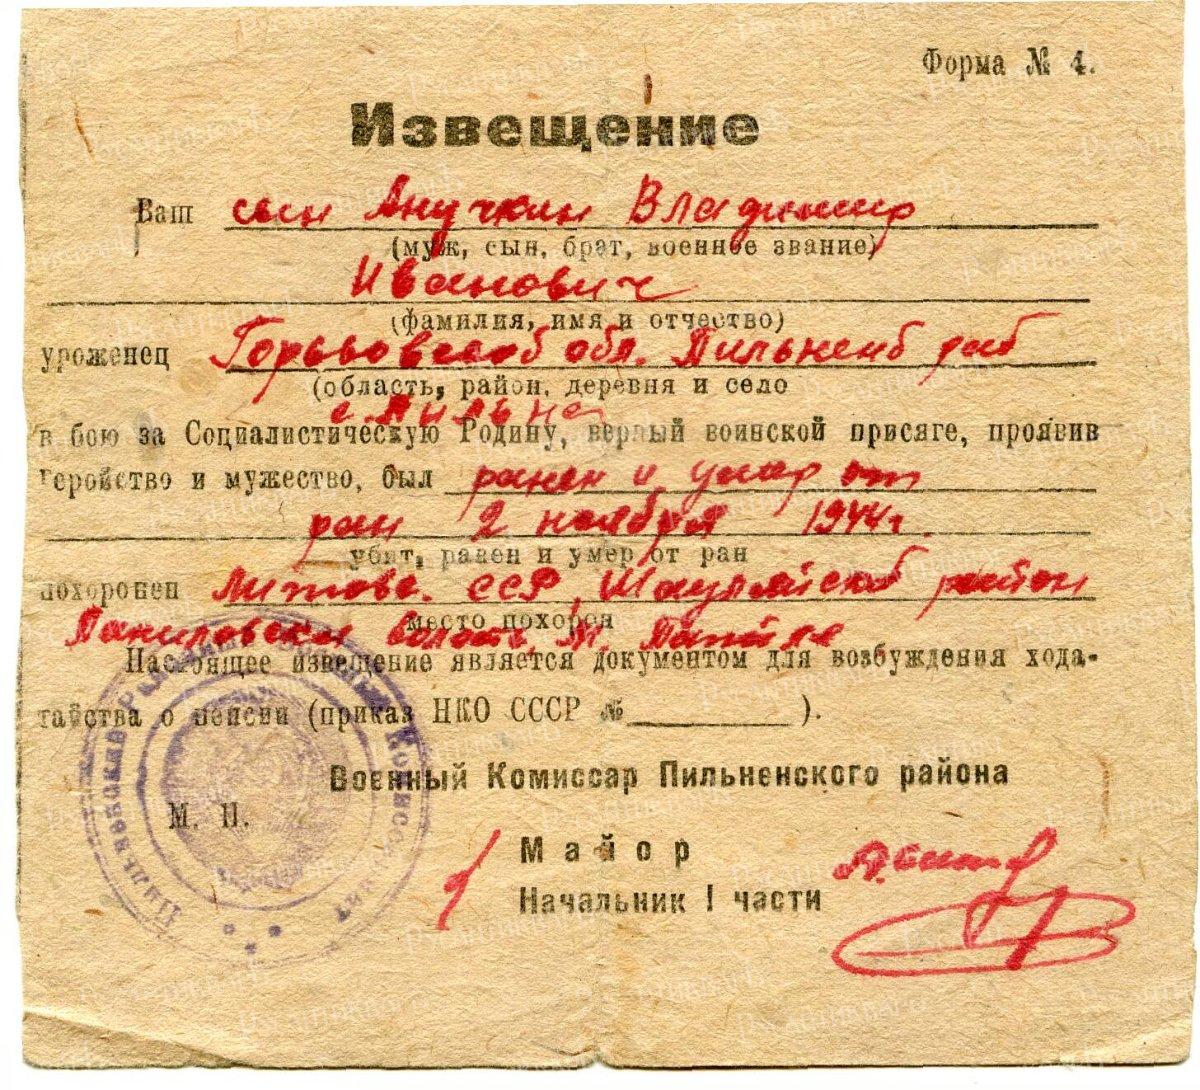 Форма № 4.
Извещение
Ваш сын Анучкин Владимир
(муж, сын, брат, военное звание)
Иванович
(фамилия, имя и отчество)
уроженец Горьковской обл. Пильненск. рай
(область, район, деревня и село
с. Пильна
в бою за Социалистическую Родину, верный воинской присяге, проявив
геройство и мужество, был ранен и умер от
ран 2 ноября 1944 г.
убит, ранен и умер от ран
похоронен Литовс. ССР, Шауляйский район
место похорон
волость, м.
Настоящее извещение является документом для возбуждения хода-
тайства о пенсии (приказ НКО СССР № ).
Военный Комиссар Пильненского района
М. П.
Майор
Начальник I части